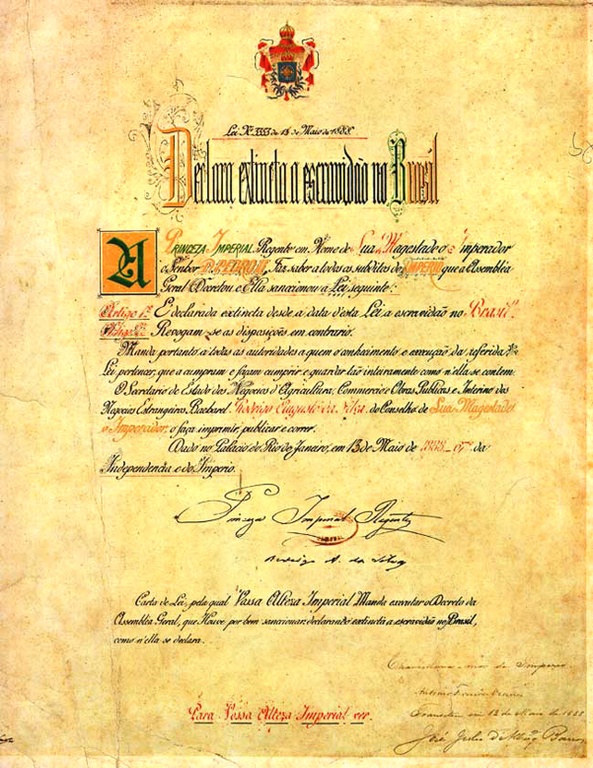 Lei Nº 3353 de 13 de Maio de 1888.
Declara extincta a escravidão no Brasil
A PRINCEZA IMPERIAL, Regente em Nome de Sua Magestade o Imperador
o Senhor D. PEDRO II, Faz saber a todos os subditos do IMPERIO que a Assembléa
Geral Decretou e Ella sanccionou a Lei seguinte:
Artigo 1º É declarada extincta desde a data d'esta Lei a escravidão no Brasil.
Artigo 2º Revogam-se as disposições em contrario.
Manda portanto a todas as autoridades a quem o conhecimento e execução da referida
Lei pertencer, que a cumpram e façam cumprir e guardar tão inteiramente como n'ella se contem.
O Secretario de Estado dos Negocios d'Agricultura, Commercio e Obras Publicas e Interino dos
Negocios Estrangeiros, Bacharel Rodrigo Augusto da Silva, do Conselho de Sua Magestade
o Imperador, o faça imprimir, publicar e correr.
Dado no Palacio do Rio de Janeiro, em 13 de Maio de 1888 67º da
Independencia e do Imperio.
Princeza Imperial Regente
Rodrigo A. da Silva
Carta de Lei, pela qual Vossa Alteza Imperial Manda executar o Decreto da
Assembléa Geral, que Houve por bem sanccionar declarando extincta a escravidão no Brasil,
como n'ella se declara.
Para Vossa Alteza Imperial ver.
Chancellaria-mór do Imperio.
Transitou em 13 de Maio de 1888
José Julio d'Albuq Barros